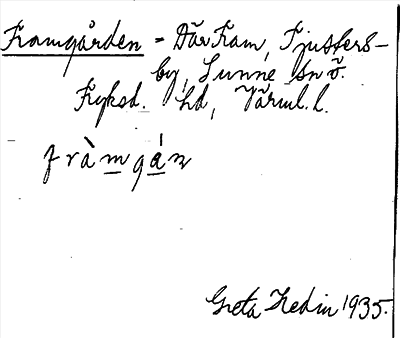 Framgården = Där Fram, Tjusters-
by, Sunne sn ö.
Fryksd. hd, Värml. l.
fràmgán
Greta Hedin 1935.